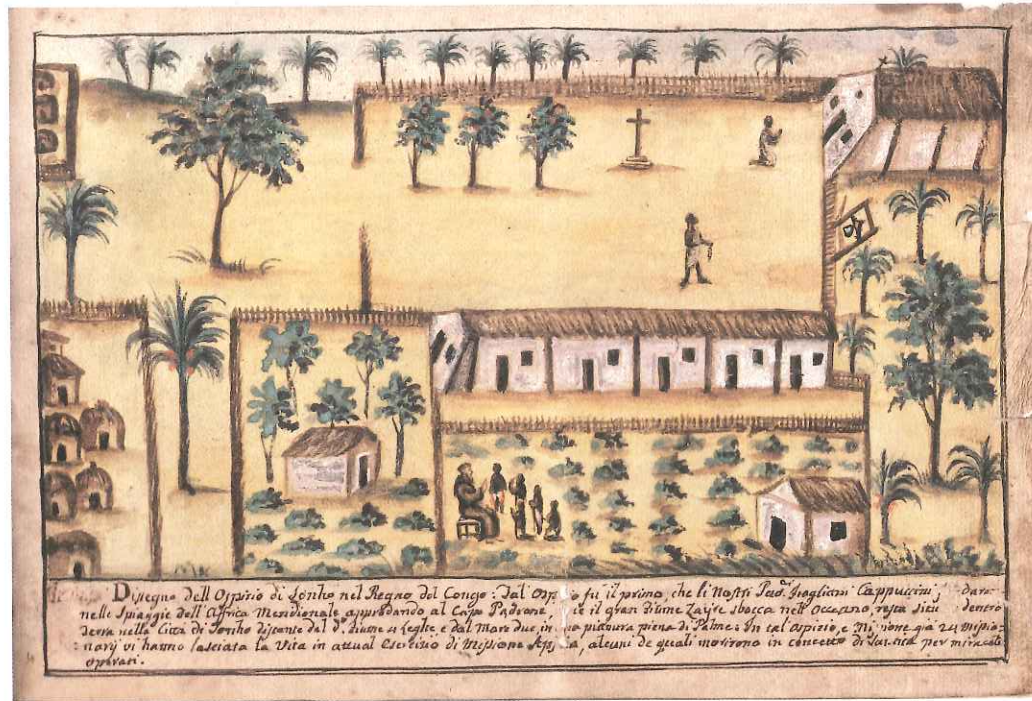 Dissegno dell Ospizio di Sonho nel Regno del Congo: Dal Osp io fu il primo, che li Nostri Italiani Cappuccini,
nelle Spiaggie dell'Affrica Meridionale approdando al Capo Padrone, e il gran fiume Zayre sbocca nell' Occeano, resta situ dentro
terra nella Città di Sonho distante dal d.º fiume 4 Leghe, e dal Mare due, in na pianura piena di Palme: In tal Ospizio, e Mi ione già 24 Missio:
:narij vi hanno lasciata la Vita in attual Esercizio di Missione Ap ca, alcuni de quali morirono in concetto di Santità per miracoli
operati.